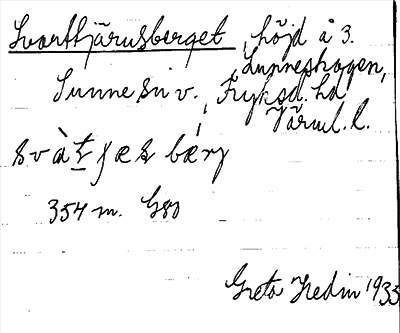 Svarttjärnsberget, höjd å 3.
Sunneskogen,
Sunne sn v., Fryksd. hd
Värml. l.
svàt̲ ʃæs bærj
354 m. G80
Greta Hedin 1933